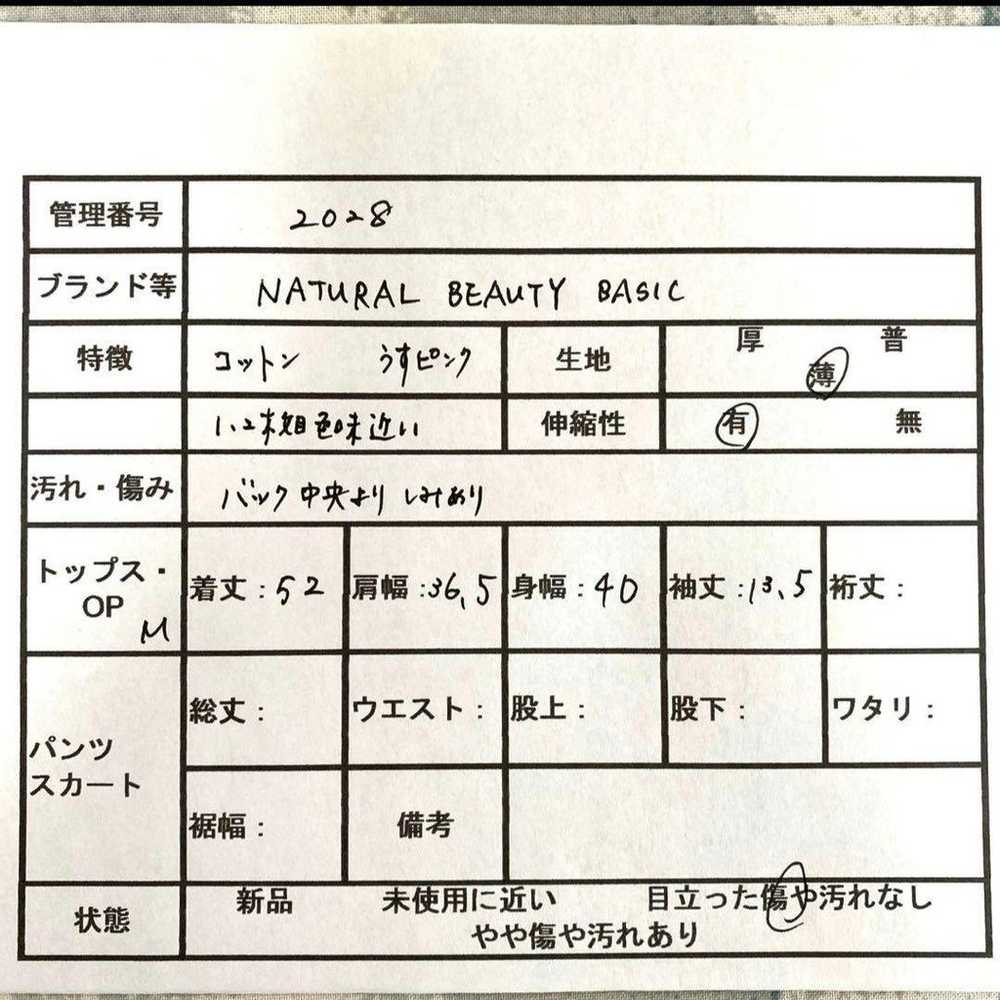 管理番号 2028
ブランド等 NATURAL BEAUTY BASIC
特徴 コットン うすピンク 生地 厚 普 薄
1、2枚目色味近い 伸縮性 有 無
汚れ・傷み バック中央より しみあり
トップス・OP M 着丈：52 肩幅：36,5 身幅：40 袖丈：13,5 裄丈：
パンツ スカート 総丈： ウエスト： 股上： 股下： ワタリ：
裾幅： 備考
状態 新品 未使用に近い 目立った傷や汚れなし
やや傷や汚れあり